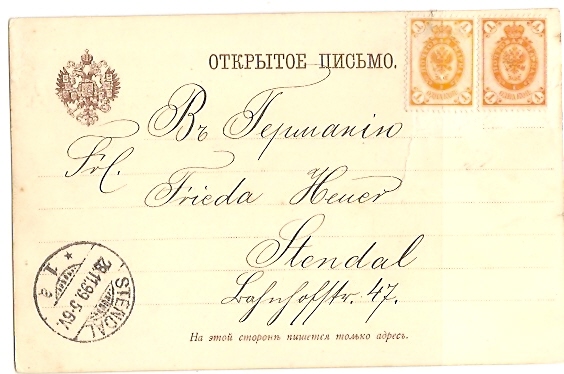 ОТКРЫТОЕ ПИСЬМО.
Въ Германію
Frl.
Frieda Heuer
Stendal
Bahnhofstr. 47.
STENDAL
28.11.99.5-6V.
* 1 e
На этой сторонѣ пишется только адресъ.